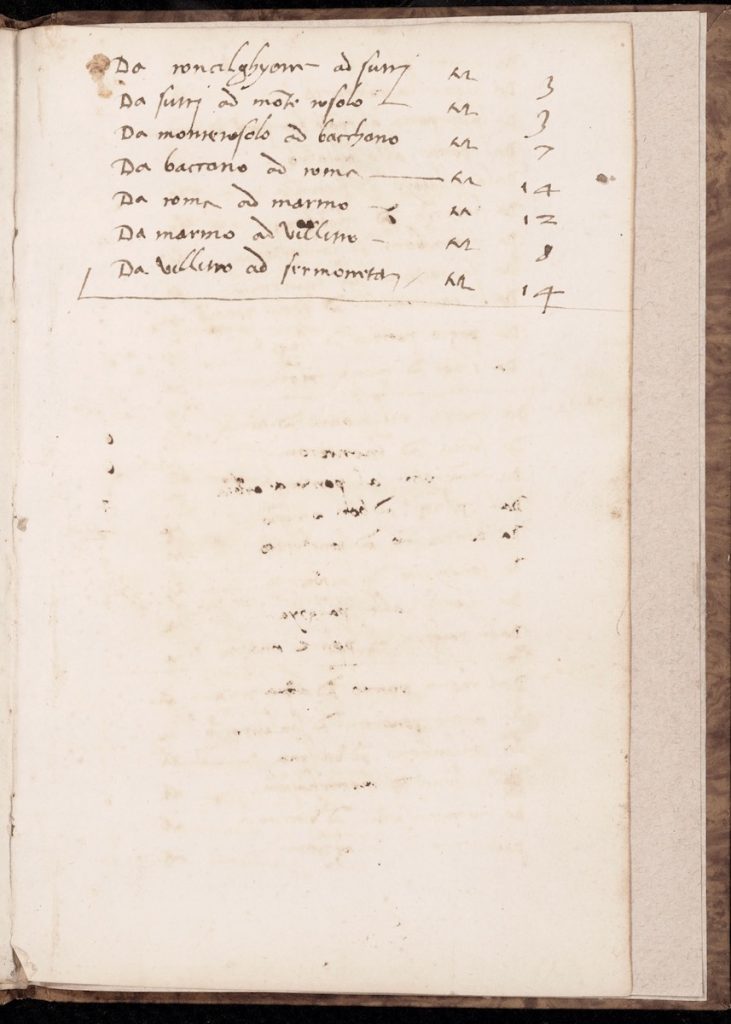 Da ronciglhyone ad sutrj M 3
Da sutrj ad mōte rosolo M 3
Da monterosolo ad bacchano M 7
Da baccano ad roma M 14
Da roma ad marino M 12
Da marino ad villitro M 8
Da villitro ad sermoneta M 14